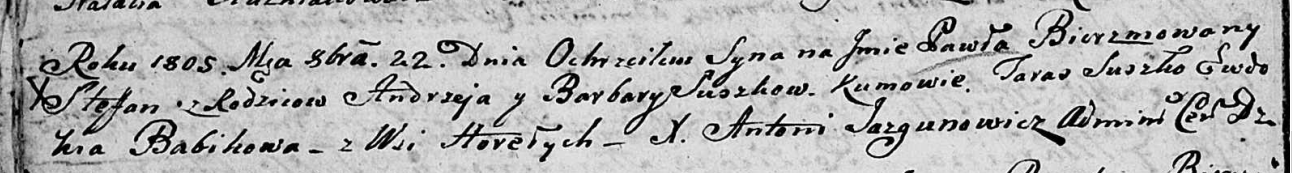 Natalia
Roku 1805. Mca 8bra. 22. Dnia Ochrzciłem Syna na Jmie Pawła Bierzmowany
X Stefan z Rodzicow Andrzeja y Barbary Suszkow. Kumowie. Taras Suszko Ewdo
kia Babikowa _ z Wsi Horełych _ X. Antoni Jazgunowicz Admini Cer Dz.